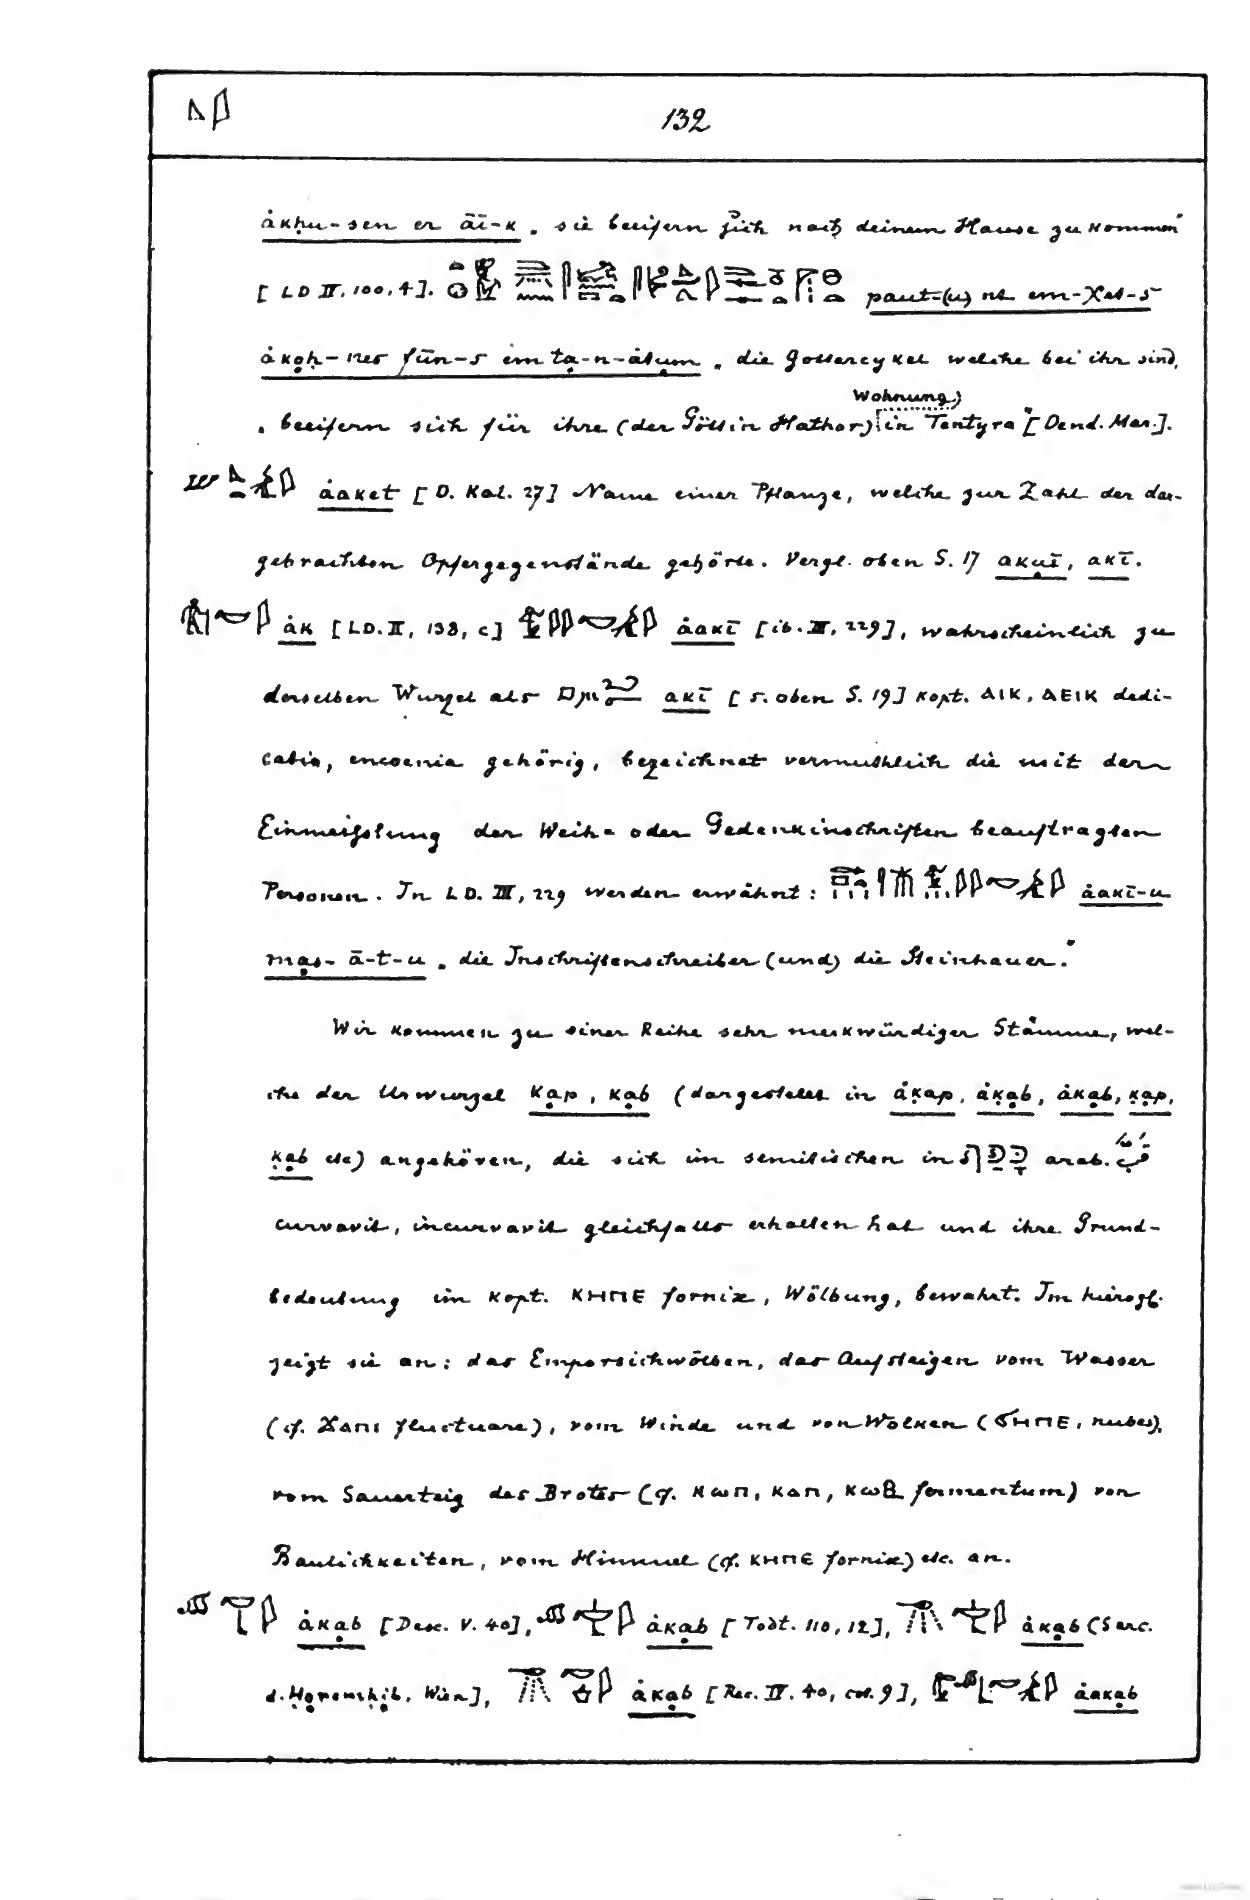 132
ȧkḥu-sen er āī-k „ sie beeifern sich nach deinem Hause zu kommen“
[LD IV. 100, 4]. paut-(u) nt em-Xet-s
ȧkạḥ-nes fūn-s em tạ-n-ȧtum „ die Göttercykel welche bei ihr sind,
„ beeifern sich für ihre (der Göttin Hathor) in Tentyra“ [Dend. Mar.].
Wohnung)
ȧaket [D. Kal. 27] Name einer Pflanze, welche zur Zahl der dar-
gebrachten Opfergegenstände gehörte. Vergl. oben S. 17 akuī, akī.
ȧk [LD. II, 138, c] ȧakī [ib. III, 229], wahrscheinlich zu
derselben Wurzel als akī [s. oben S. 19] kopt. ⲁⲓⲕ, ⲁⲉⲓⲕ dedi-
catio, encoenia gehörig, bezeichnet vermuthlich die mit der
Einmeißelung der Weih- oder Gedenkinschriften beauftragten
Personen. In LD. III, 229 werden erwähnt: ȧakī-u
mạs-ā-t-u „ die Inschriftenschreiber (und) die Steinhauer.“
Wir kommen zu einer Reihe sehr merkwürdiger Stämme, wel-
che der Urwurzel kạp, kạb (dargestellt in ȧḳap, ȧḳạb, ȧkạb, ḳạp,
ḳạb etc) angehören, die sich im semitischen in כָּפַף arab.
curvavit, incurvavit gleichfalls erhalten hat und ihre Grund-
bedeutung im kopt. ⲕⲏⲡⲉ fornix, Wölbung, bewahrt. Im hierogl.
zeigt sie an: das Emporsichwölben, das Aufsteigen vom Wasser
(cf. ϫⲁⲡⲓ fluctuare), vom Winde und von Wolken (ϭⲏⲡⲉ, nubes),
vom Sauerteig des Brotes (cf. ⲕⲱⲡ, ⲕⲁⲡ, ⲕⲱⲃ fermentum) von
Baulichkeiten, vom Himmel (cf. ⲕⲏⲡⲉ fornix) etc. an.
ȧkạb [Desc. V. 40], ȧkạb [Todt. 110, 12], ȧkạb (Sarc.
d. Ḥọremḥịb. Wien], ȧkạb [Rec. IV. 40, col. 9], ȧakạb